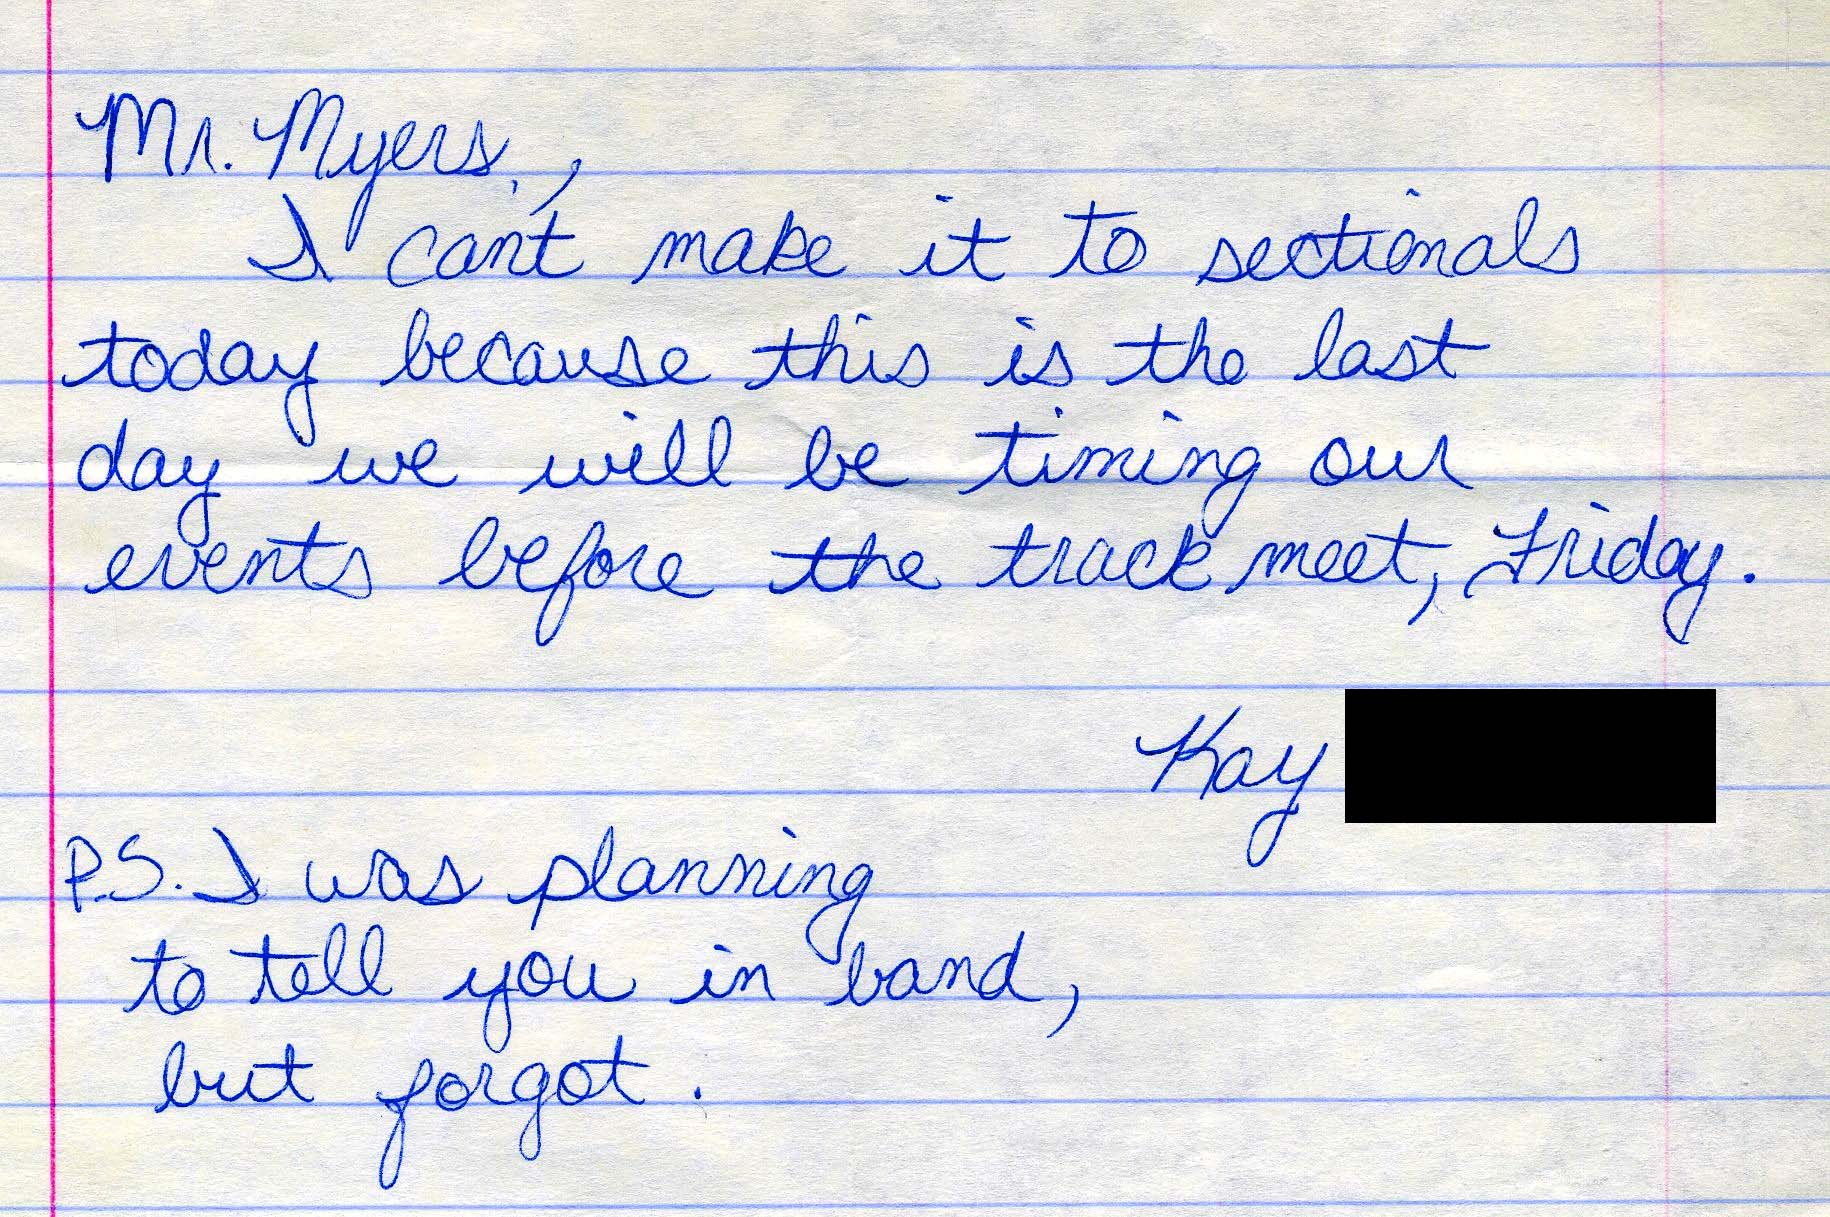 Mr. Myers,
I can't make it to sectionals
today because this is the last
day we will be timing our
events before the track meet, Friday.
Kay
P.S. I was planning
to tell you in band,
but forgot.